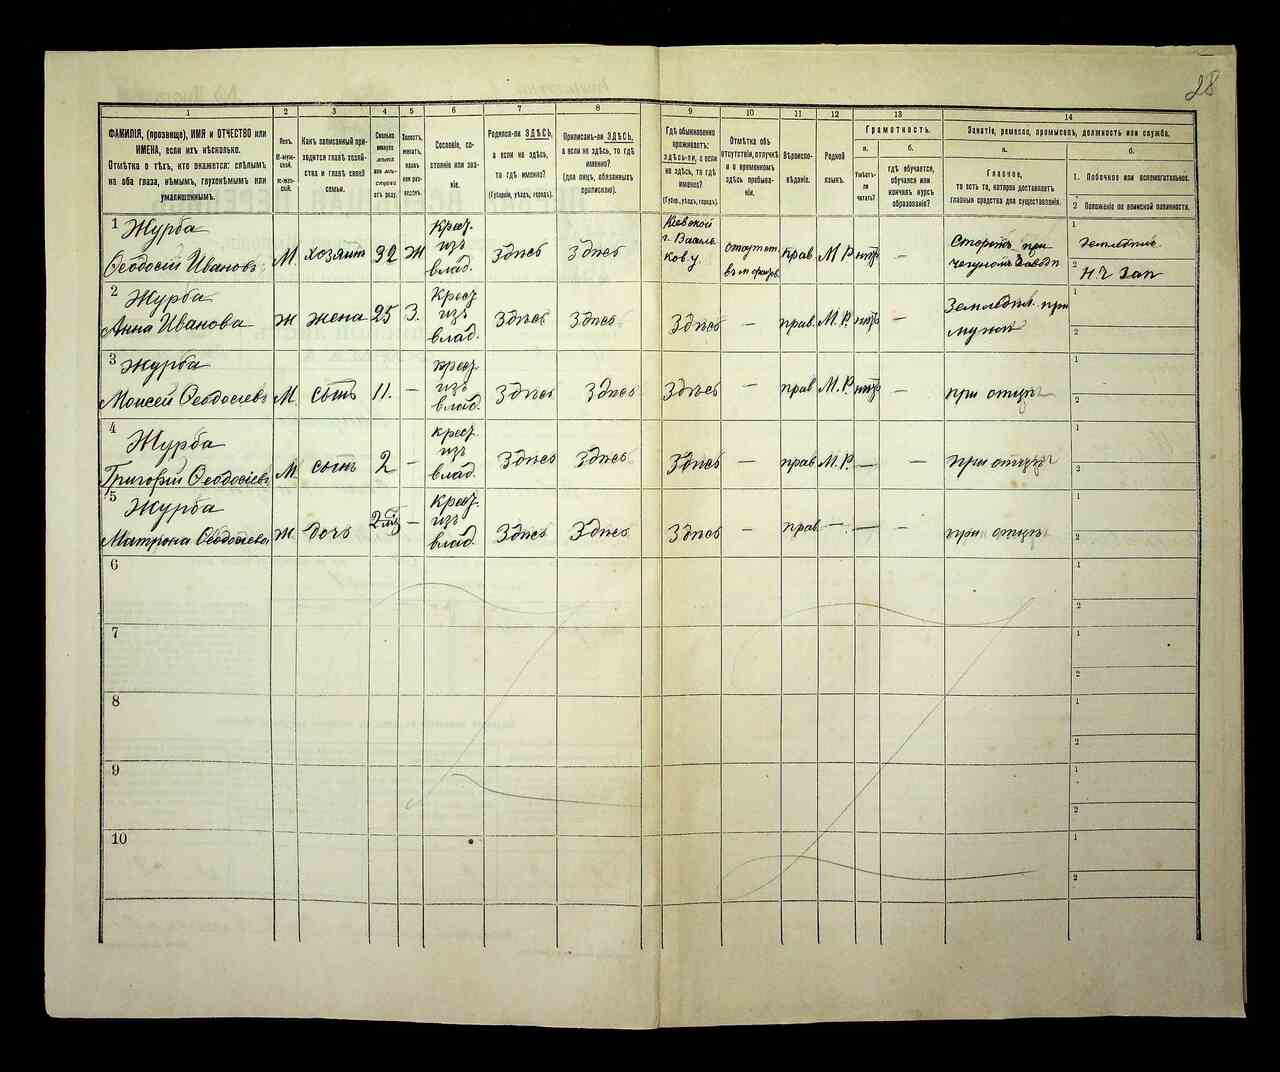 28
1
2
3
4
5
6
7
8
9
10
11
12
13
14
ФАМИЛІЯ, (прозвище), ИМЯ и ОТЧЕСТВО или
ИМЕНА, если ихъ нѣсколько.
Отмѣтка о тѣхъ, кто окажется: слѣпымъ
на оба глаза, нѣмымъ, глухонѣмымъ или
умалишеннымъ.
Полъ.
М-муж-
ской.
Ж-жен-
скій.
Какъ записанный при-
ходится главѣ хозяй-
ства и главѣ своей
семьи.
Сколько
минуло
лѣтъ
или мѣ-
сяцевъ
отъ роду.
Холостъ,
женатъ,
вдовъ
или раз-
веденъ.
Сословіе, со-
стояніе или зва-
ніе.
Родился-ли ЗДѢСЬ,
а если не здѣсь,
то гдѣ именно?
(Губернія, уѣздъ, городъ).
Приписанъ-ли ЗДѢСЬ,
а если не здѣсь, то гдѣ
именно?
(для лицъ, обязанныхъ
припискою).
Гдѣ обыкновенно
проживаетъ:
здѣсь-ли, а если
не здѣсь, то гдѣ
именно?
(Губер., уѣздъ, городъ).
Отмѣтка объ
отсутствіи, отлучкѣ
и о временномъ
здѣсь пребыва-
ніи.
Вѣроиспо-
вѣданіе.
Родной
языкъ.
Грамотность.
а.
Умѣетъ-
ли
читать?
б.
гдѣ обучается,
обучался или
кончилъ курсъ
образованія?
Занятіе, ремесло, промыселъ, должность или служба.
а.
Главное,
то есть то, которое доставляетъ
главныя средства для существованія.
б.
1. Побочное или вспомогательное.
2 Положеніе по воинской повинности.
1 Журба
Ѳеодосій Ивановъ М хозяинъ 32 Ж
Крест.
изъ
влад.
Здѣсь Здѣсь
Кіевской
г. Василь
ков. у.
отсутст.
прав. М.Р. нѣтъ —
Сторожъ при
чугуномъ заводѣ
1
земледѣл.
2
Н. Ч. Зап
2 Журба
Анна Иванова ж жена 25 З.
Крест
изъ
влад.
Здѣсь Здѣсь Здѣсь — прав. М.Р. нѣтъ —
Земледѣл. при
мужѣ
1
2
3 Журба
Моисей Ѳеодосіевъ М. сынъ 11. —
крест
изъ
влад.
Здѣсь Здѣсь Здѣсь — прав М.Р. нѣтъ —
при отцѣ
1
2
4 Журба
Григорій Ѳеодосіевъ М. сынъ 2 —
крест.
изъ
влад.
Здѣсь Здѣсь Здѣсь — прав М.Р. — —
при отцѣ
1
2
5 Журба
Матрона Ѳеодосіева Ж. дочь 2 —
Крест.
изъ
влад.
Здѣсь Здѣсь Здѣсь — прав. — — —
при отцѣ
1
2
6
1
2
7
1
2
8
1
2
9
1
2
10
1
2